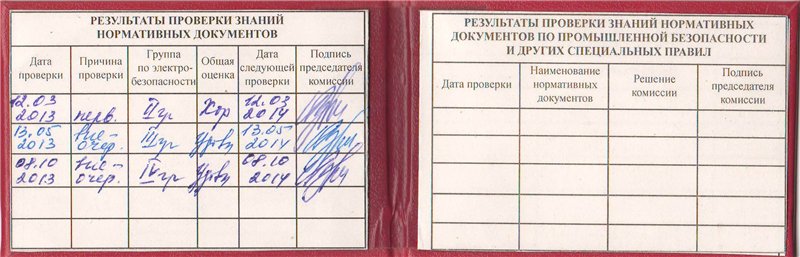 РЕЗУЛЬТАТЫ ПРОВЕРКИ ЗНАНИЙ
НОРМАТИВНЫХ ДОКУМЕНТОВ
Дата проверки
Причина проверки
Группа по электро-безопасности
Общая оценка
Дата следующей проверки
Подпись председателя комиссии
12.03 2013 перв. II гр Хор 12.03 2014
13.05 2013 вне-очер. III гр удовл 13.05 2014
08.10 2013 вне-очер. IV гр удовл 08.10 2014
РЕЗУЛЬТАТЫ ПРОВЕРКИ ЗНАНИЙ НОРМАТИВНЫХ
ДОКУМЕНТОВ ПО ПРОМЫШЛЕННОЙ БЕЗОПАСНОСТИ
И ДРУГИХ СПЕЦИАЛЬНЫХ ПРАВИЛ
Дата проверки
Наименование нормативных документов
Решение комиссии
Подпись председателя комиссии